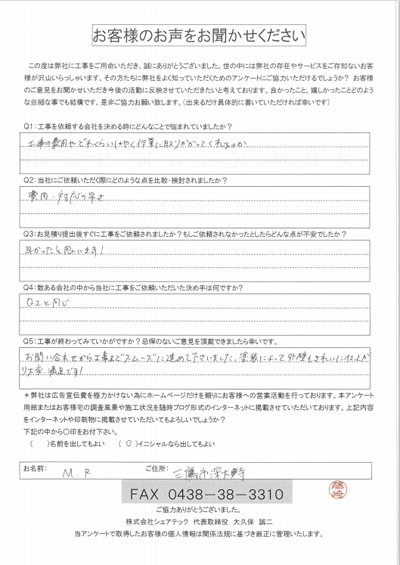 お客様のお声をお聞かせください
この度は弊社に工事をご用命いただき、誠にありがとうございました。世の中には弊社の存在やサービスをご存知ないお客
様が沢山いらっしゃいます。その方たちに弊社をよく知っていただくためのアンケートにご協力いただけるでしょうか? お客様
のご意見をお聞かせいただき今後の活動に反映させていただきたいと考えております。良かったこと、嬉しかったことどのよう
な些細な事でも結構です。是非ご協力お願い致します。(出来るだけ具体的に書いていただければ幸いです)
Q1:工事を依頼する会社を決める時にどんなことで悩まれていましたか?
工事の費用やどれくらいはやく作業に取りかかってくれるのか
Q2:当社にご依頼いただく際にどのような点を比較・検討されましたか?
費用・対応の早さ
Q3:お見積り提出後すぐに工事をご依頼されましたか?もしご依頼されなかったとしたらどんな点が不安でしたか?
早かったと思います!
Q4:数ある会社の中から当社に工事をご依頼いただいた決め手は何ですか?
Q2と同じ
Q5:工事が終わってみていかがですか?忌憚のないご意見を頂戴できましたら幸いです。
お問い合わせから工事までスムーズに進めて下さいました。塗装によって外壁もきれいに仕上がり
り大変満足です!
*弊社は広告宣伝費を極力かけない為にホームページだけを頼りにお客様への営業活動を行っております。本アンケート
用紙またはお客様宅の調査風景や施工状況を随時ブログ形式のインターネットに掲載させていただいております。上記内容
をインターネットや印刷物に掲載させていただいてもよろしいでしょうか?
下記の中から〇印をお付下さい。
( )名前を出してもよい (〇)イニシャルなら出してもよい
お名前: M.R ご住所: 三鷹市深大寺
FAX 0438-38-3310
ご協力ありがとうございました。
株式会社シェアテック 代表取締役 大久保 誠二
当アンケートで取得したお客様の個人情報は関係法規に基づき厳正に管理いたします。